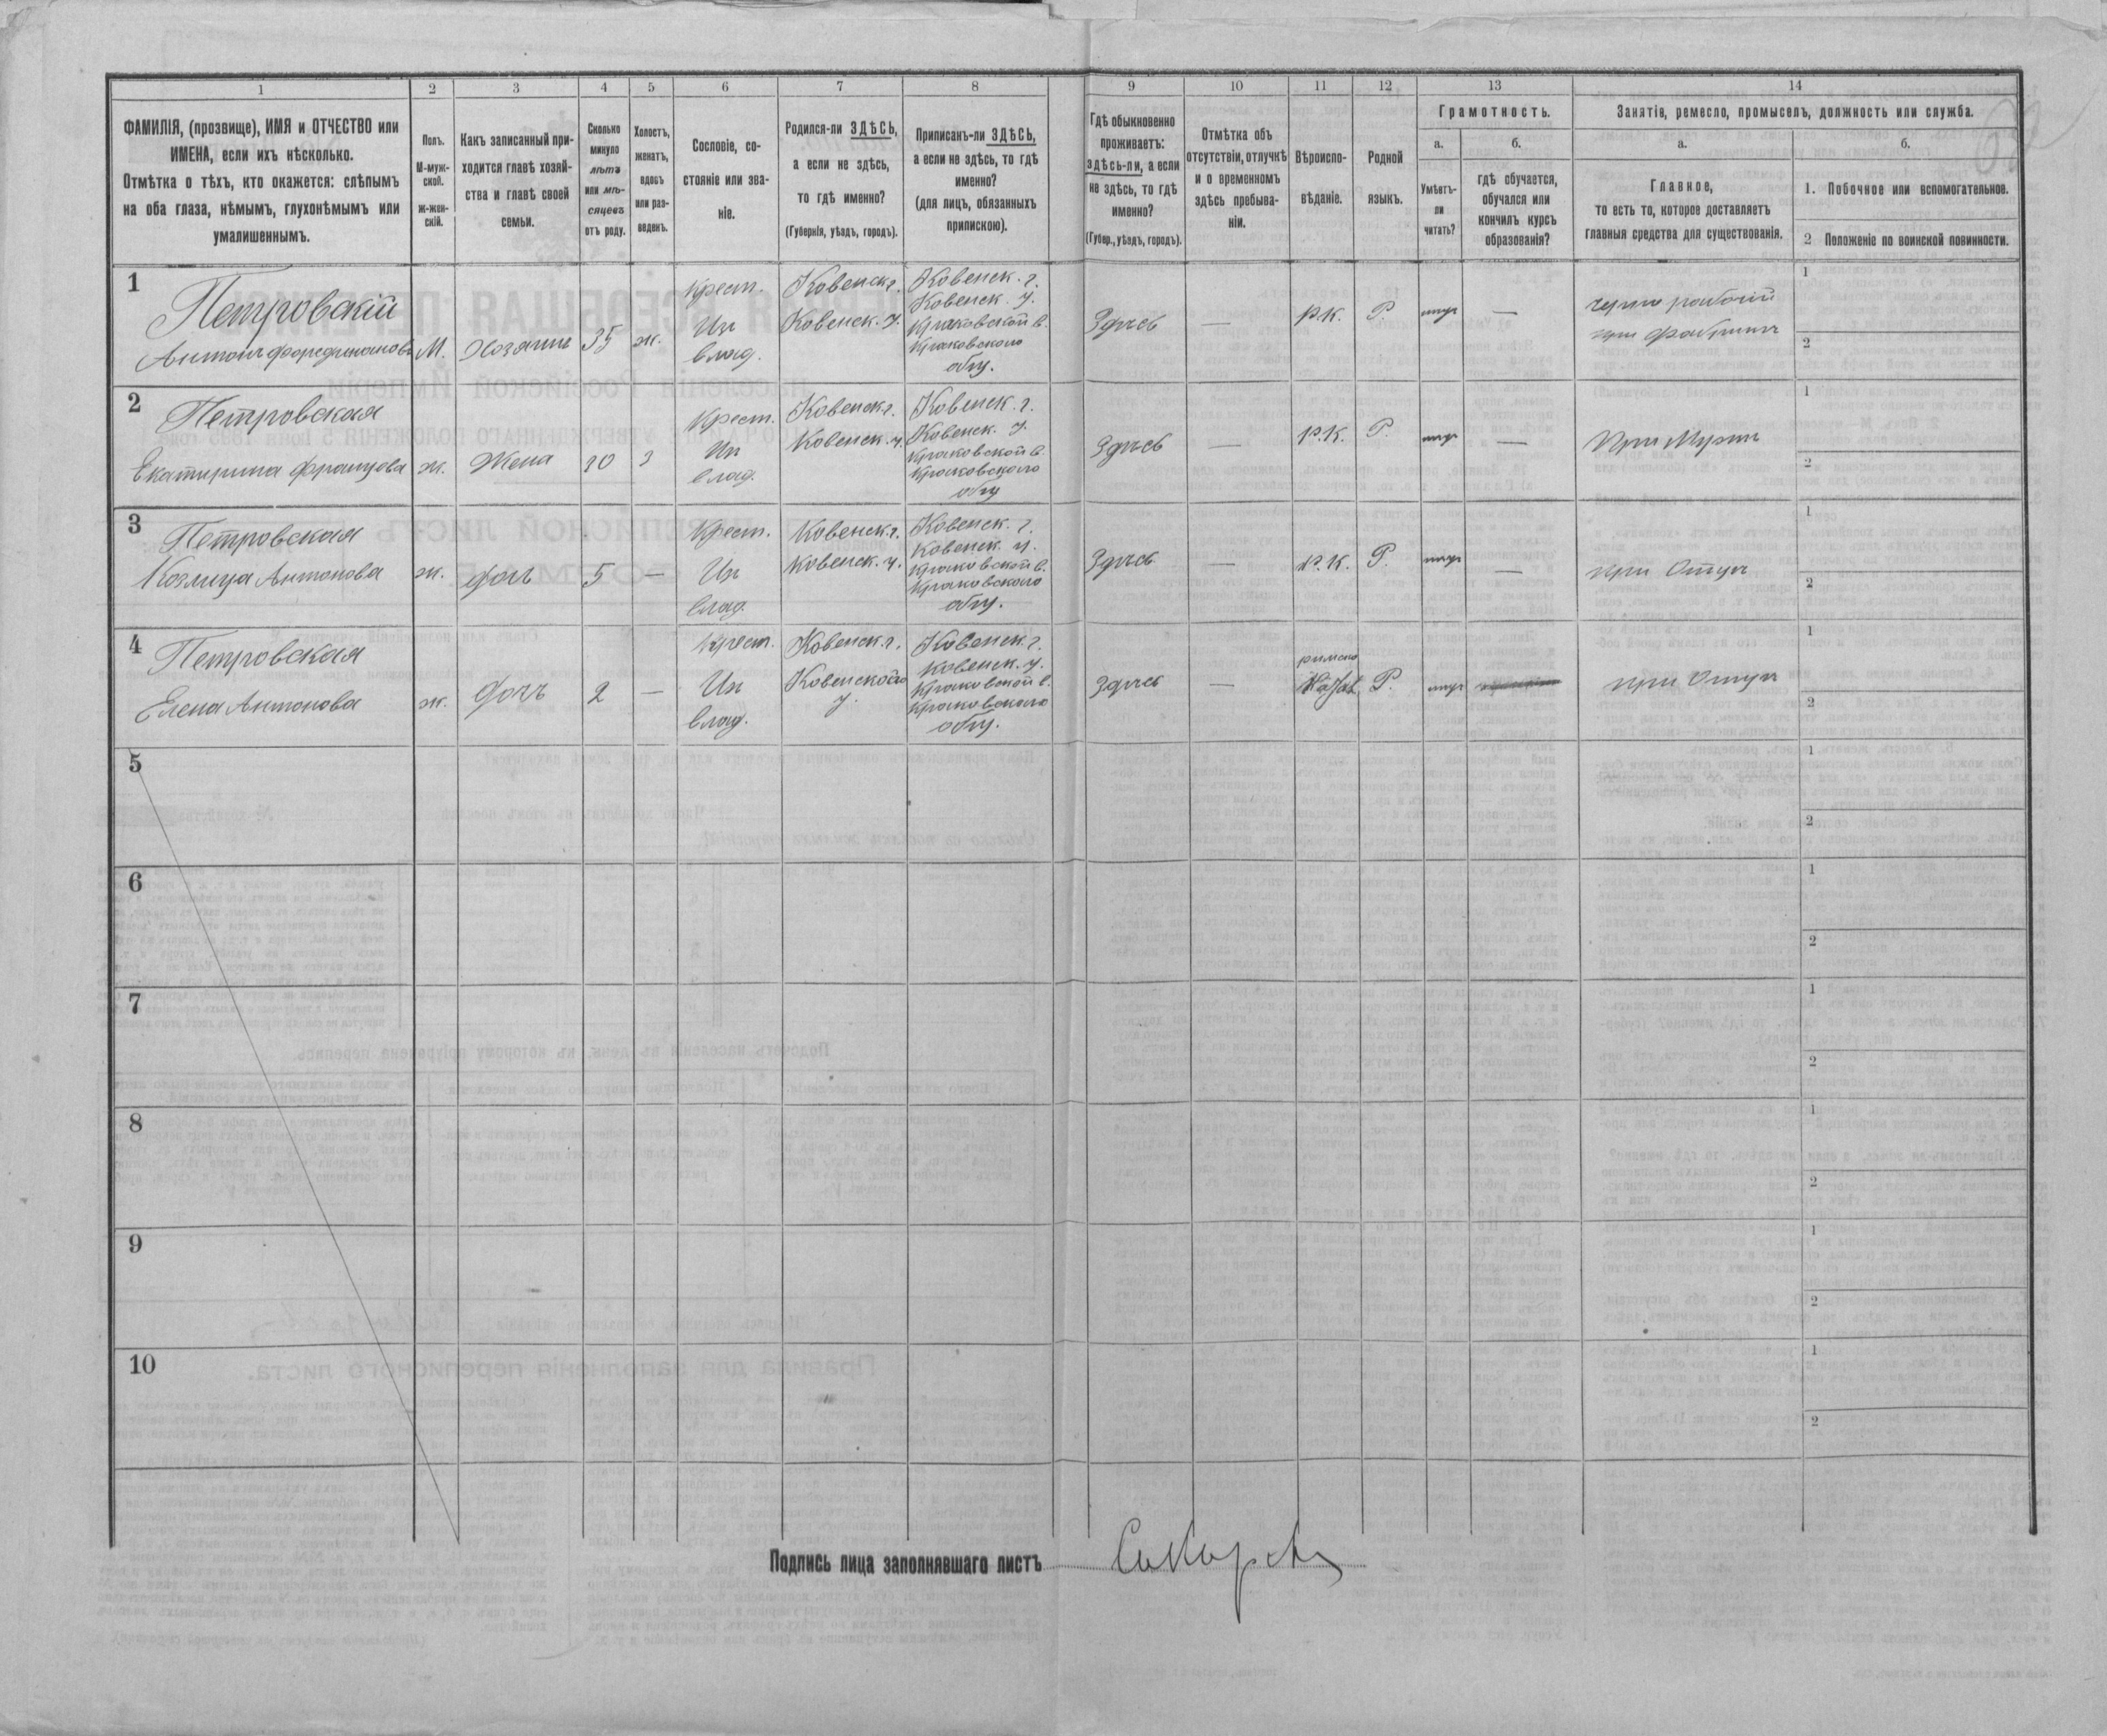 1 2 3 4 5 6 7 8 9 10 11 12 13 14
ФАМИЛІЯ, (прозвище), ИМЯ и ОТЧЕСТВО или
ИМЕНА, если ихъ нѣсколько.
Отмѣтка о тѣхъ, кто окажется: слѣпымъ
на оба глаза, нѣмымъ, глухонѣмымъ или
умалишеннымъ.
Полъ.
М-муж-
ской.
Ж-жен-
скій.
Какъ записанный при-
ходится главѣ хозяй-
ства и главѣ своей
семьи.
Сколько
минуло
лѣтъ
или мѣ-
сяцевъ
отъ роду.
Холостъ,
женатъ,
вдовъ
или раз-
веденъ.
Сословіе, со-
стояніе или зва-
ніе.
Родился-ли ЗДѢСЬ,
а если не здѣсь,
то гдѣ именно?
(Губернія, уѣздъ, городъ).
Приписанъ-ли ЗДѢСЬ,
а если не здѣсь, то гдѣ
именно?
(для лицъ, обязанныхъ
припискою).
Гдѣ обыкновенно
проживаетъ:
здѣсь-ли, а если
не здѣсь, то гдѣ
именно?
(Губер., уѣздъ, городъ).
Отмѣтка объ
отсутствіи, отлучкѣ
и о временномъ
здѣсь пребыва-
ніи.
Вѣроиспо-
вѣданіе.
Родной
языкъ.
Грамотность.
а.
Умѣетъ-
ли
читать?
б.
гдѣ обучается,
обучался или
кончилъ курсъ
образованія?
Занятіе, ремесло, промыселъ, должность или служба.
а.
Главное,
то есть то, которое доставляетъ
главныя средства для существованія.
б.
1. Побочное или вспомогательное.
2 Положеніе по воинской повинности.
1
Петровскій
Антонъ
М. Хозяинъ 35 ж.
Крест.
Ип
влад.
Ковенск г.
Ковенск. у.
Ковенск. г.
Ковенск. у.
Краковской в.
Краковского
общ.
Здѣсь — Р.К. Р. —
рабочій
при фабрикѣ
1
2
2
Петровская
Екатерина Францова
ж. Жена 30 з
Крест.
Ип
влад.
Ковенск г.
Ковенск. у.
Ковенск. г.
Ковенск. у.
Краковской в.
Краковского
общ
Здѣсь — Р.К. Р. —
При Мужѣ
1
2
3
Петровская
Антонова
ж. дочь 5 —
Крест.
Ип
влад.
Ковенск г.
Ковенск. у.
Ковенск. г.
Ковенск. у.
Краковской в.
Краковского
общ.
Здѣсь — Р.К. Р. —
при Отцѣ
1
2
4
Петровская
Елена Антонова
ж. дочь 2 —
Крест.
Ип
влад.
Ковенск г.
Ковенского
у.
Ковенск. г.
Ковенск. у.
Краковской в.
Краковского
общ.
здѣсь —
римско
Р.
при Отцѣ
1
2
5
1
2
6
1
2
7
1
2
8
1
2
9
1
2
10
1
2
Подпись лица заполнявшаго листъ